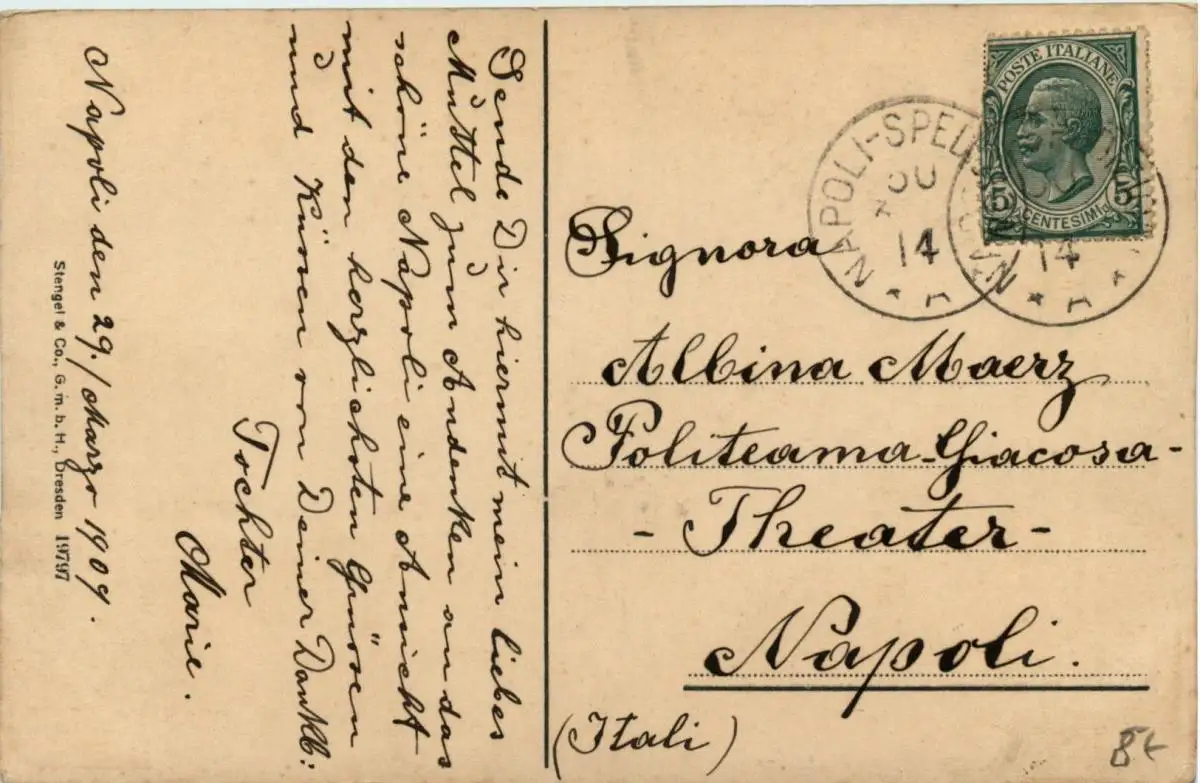 Napoli den 29./Marzo 1909.
Sende Dir hiermit mein liebes
Muttel zum Andenken an das
schöne Napoli eine Ansicht
mit den herzlichsten Grüssen
und Küssen von Deiner Dankb:
Tochter
Marie.
Stengel & Co., G.m.b.H., Dresden 19797
POSTE ITALIANE
5 CENTESIMI 5
NAPOLI-SPED
14
14
Signora
Albina Maerz
Politeama-Giacosa-
-Theater-
Napoli.
(Itali)
8€